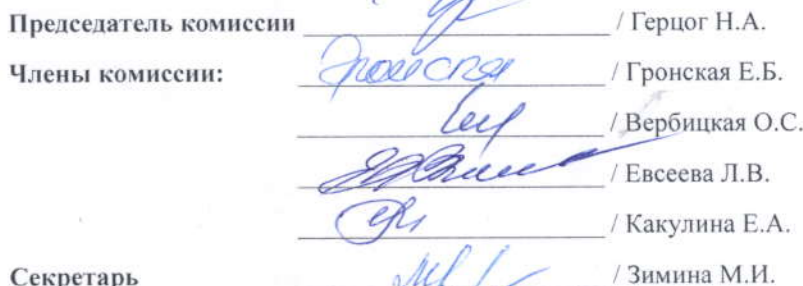 Председатель комиссии / Герцог Н.А.
Члены комиссии: / Гронская Е.Б.
/ Вербицкая О.С.
/ Евсеева Л.В.
/ Какулина Е.А.
Секретарь / Зимина М.И.